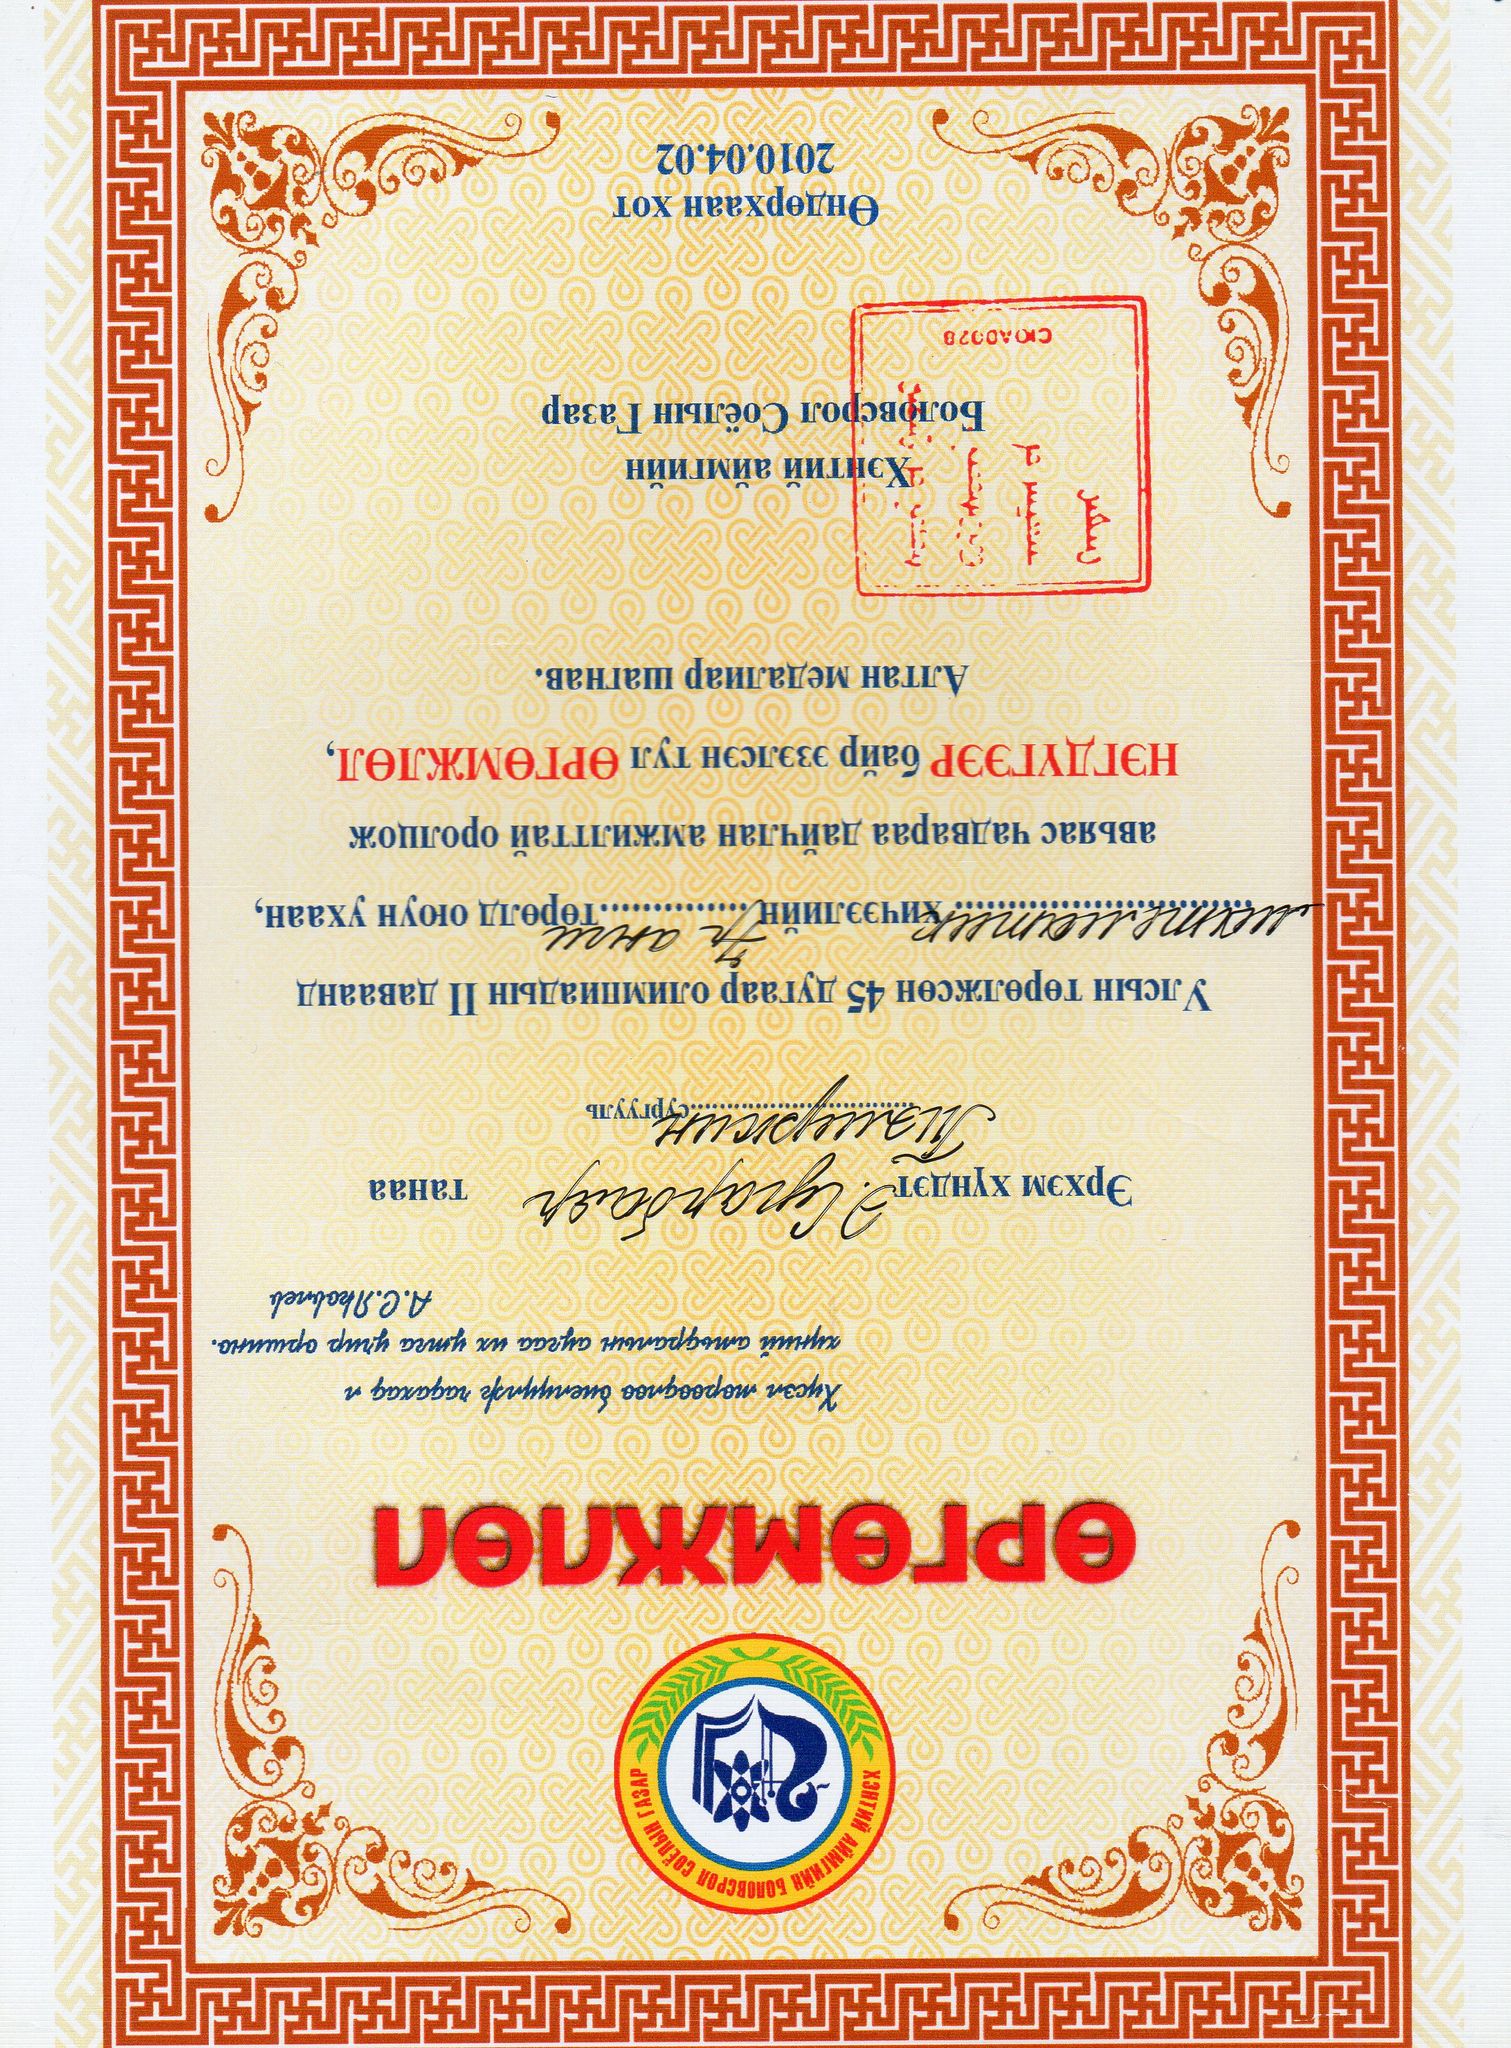 ХЭНТИЙ АЙМГИЙН БОЛОВСРОЛ СОЁЛЫН ГАЗАР
ӨРГӨМЖЛӨЛ
Хүсэл мөрөөдлөө биелүүлж чадахад л
хүний амьдралын аугаа их утга учир оршино.
А.С.Яковлев
Эрхэм хүндэт Э. Сугарбаяр танаа
Тэмүжин сургууль
Улсын төрөлжсөн 45 дугаар олимпиадын II даваанд
математик хичээлийн 7р анги төрөлд оюун ухаан,
авьяас чадвараа дайчлан амжилттай оролцож
НЭГДҮГЭЭР байр эзэлсэн тул ӨРГӨМЖЛӨЛ,
Алтан медалиар шагнав.
Хэнтий аймгийн
Боловсрол Соёлын Газар
СЮА0028
Өндөрхаан хот
2010.04.02